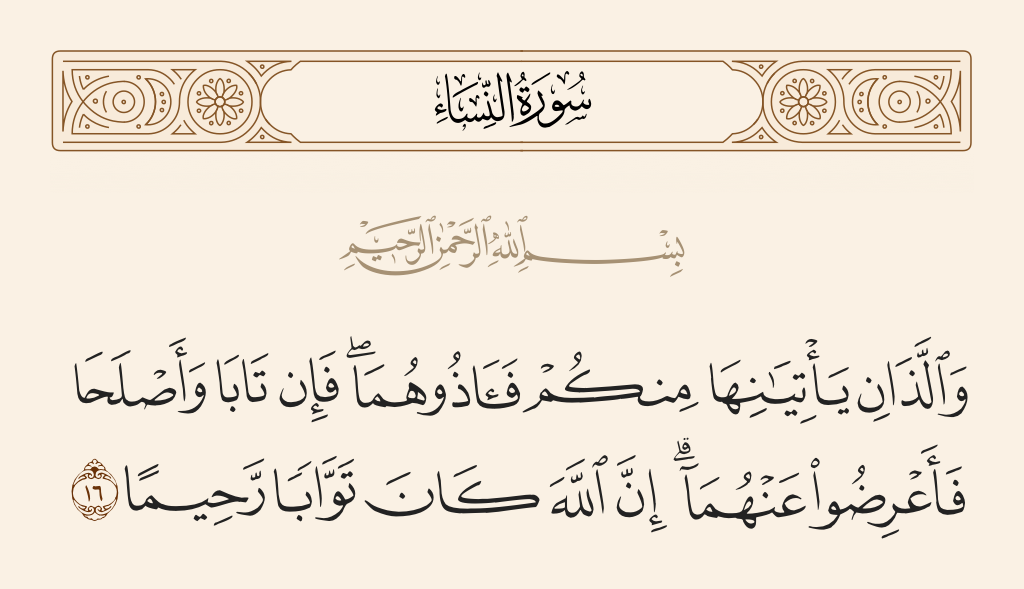 سُورَةُ النِّسَاءِ
بِسْمِ ٱللَّهِ ٱلرَّحْمَٰنِ ٱلرَّحِيمِ
وَٱلَّذَانِ يَأْتِيَٰنِهَا مِنكُمْ فَـَٔاذُوهُمَا ۖ فَإِن تَابَا وَأَصْلَحَا
فَأَعْرِضُوا۟ عَنْهُمَآ ۗ إِنَّ ٱللَّهَ كَانَ تَوَّابًا رَّحِيمًا ١٦